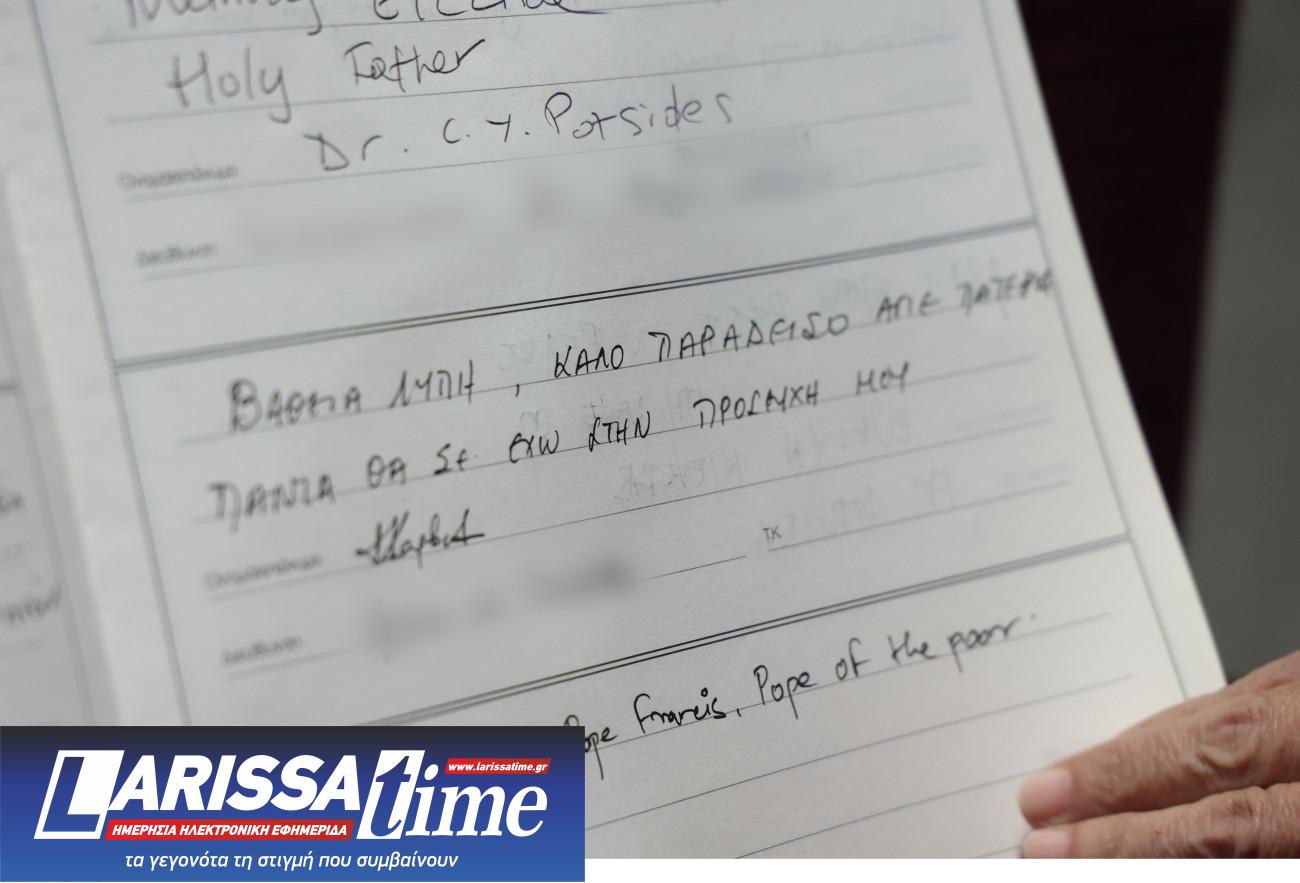 Memory Eternal
Holy Father
Ονοματεπώνυμο Dr. C. Y. Potsides
Διεύθυνση
ΒΑΘΕΙΑ ΛΥΠΗ, ΚΑΛΟ ΠΑΡΑΔΕΙΣΟ ΑΓΙΕ ΠΑΤΕΡΑ
ΠΑΝΤΑ ΘΑ ΣΕ ΕΧΩ ΣΤΗΝ ΠΡΟΣΕΥΧΗ ΜΟΥ
Ονοματεπώνυμο
ΤΚ
Διεύθυνση
Pope Francis, Pope of the poor.
LARISSAtime
www.larissatime.gr
ΗΜΕΡΗΣΙΑ ΗΛΕΚΤΡΟΝΙΚΗ ΕΦΗΜΕΡΙΔΑ
τα γεγονότα τη στιγμή που συμβαίνουν